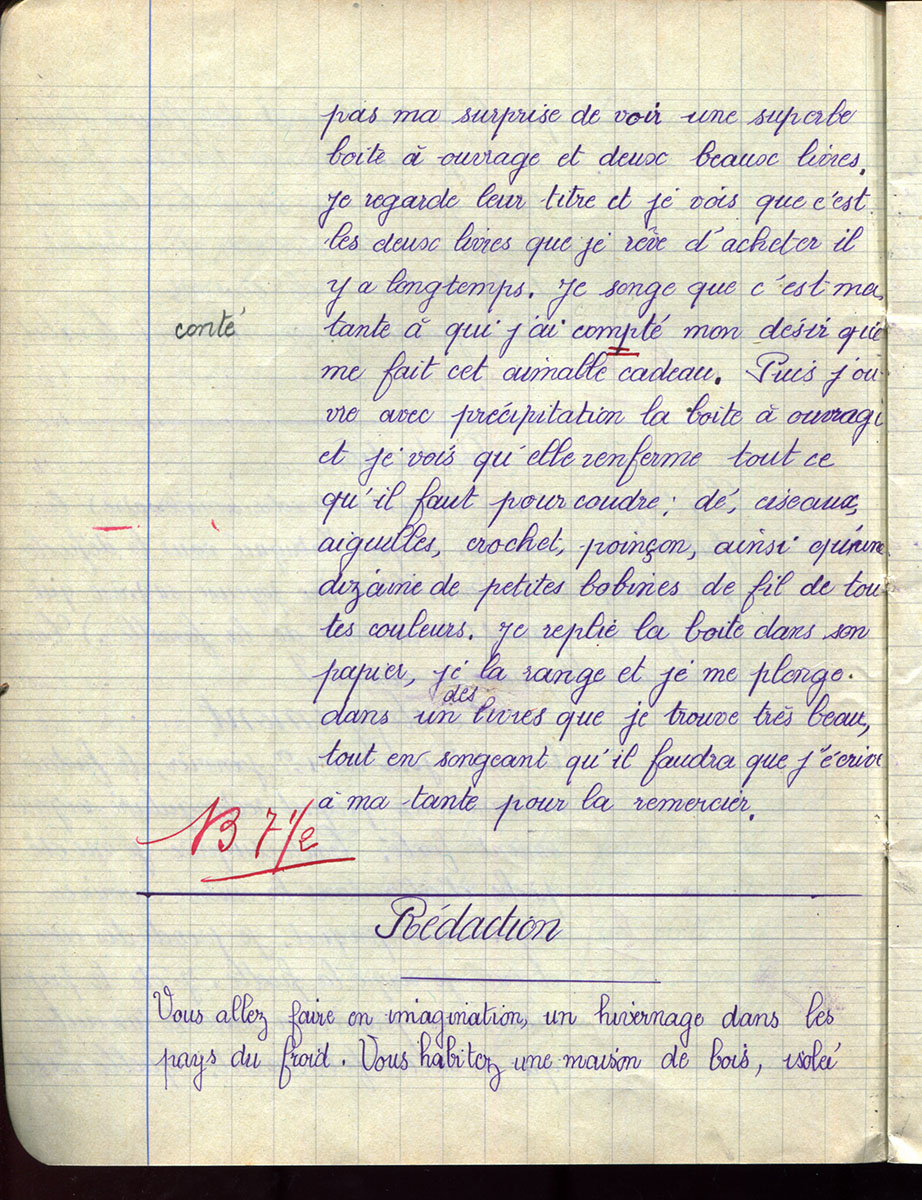 pas ma surprise de voir une superbe
boite à ouvrage et deux beaux livres.
Je regarde leur titre et je vois que c'est
les deux livres que je rêve d'acheter il
y a longtemps. Je songe que c'est ma
conté tante à qui j'ai compté mon désir qui
me fait cet aimable cadeau. Puis j'ou-
vre avec précipitation la boite à ouvrage
et je vois qu'elle renferme tout ce
qu'il faut pour coudre; dé, ciseaux,
aiguilles, crochet, poinçon, ainsi qu'une
dizaine de petites bobines de fil de tou-
tes couleurs. Je replie la boite dans son
papier, je la range et je me plonge
des
dans un livres que je trouve très beau,
tout en songeant qu'il faudra que j'écrive
à ma tante pour la remercier.
B 7 1/2
Rédaction
Vous allez faire en imagination, un hivernage dans les
pays du froid. Vous habitez une maison de bois, isolée